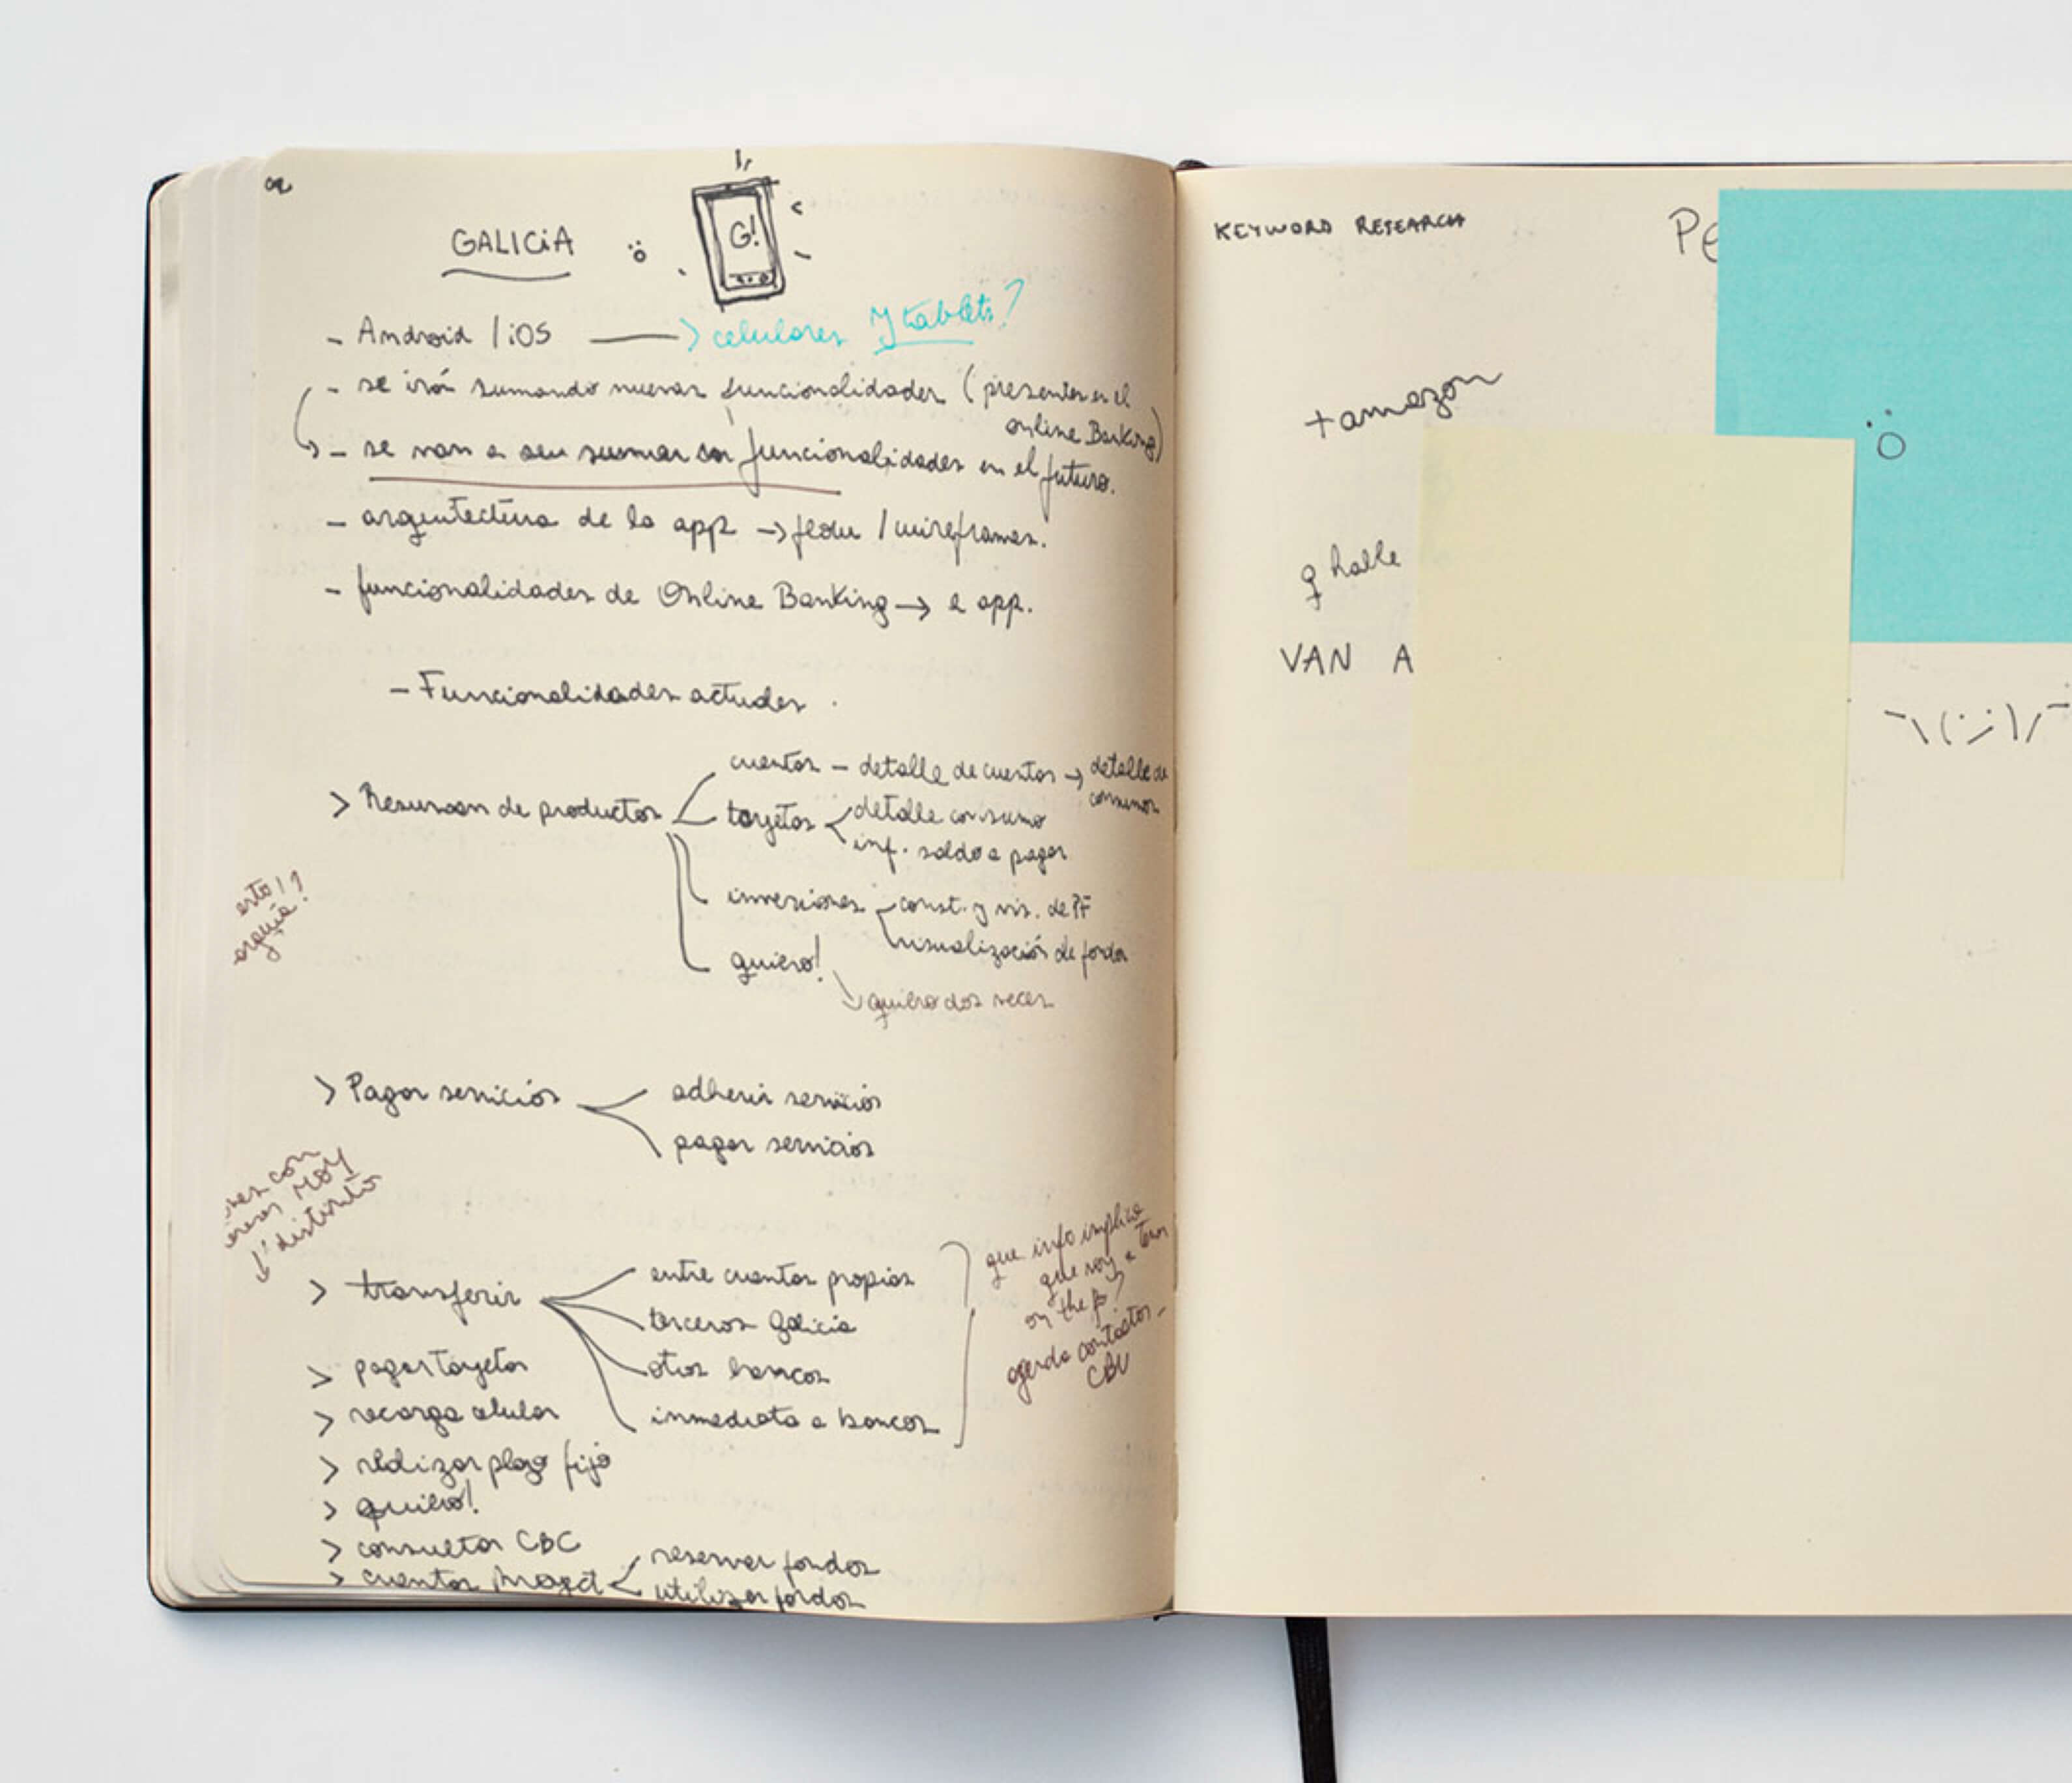 GALICiA
G!
- Android / iOS ———> celulares y tablets?
- se irán sumando nuevas funcionalidades (presentes en el
online Banking)
- se van a sumar funcionalidades en el futuro.
- arquitectura de la app → flow / wireframes.
- funcionalidades de Online Banking → a app.
- Funcionalidades actuales
> Resumen de productos
cuentas - detalle de cuentas → detalle de
consumos
tarjetas
detalle consumo
inf. saldo a pagar
inversiones
const. y vis. de PF
visualización de fondos
quiero!
quiero dos veces
esto
> Pagar servicios
adherir servicios
pagar servicios
con
MOY
distinto
> transferir
entre cuentas propias
terceros Galicia
otros bancos
inmediata a bancos
que info implica
que voy a tener
on the
agenda contactos -
CBU
> pagar tarjetas
> recarga celular
> realizar plazo fijo
> quiero!
> consultar CBC
> cuentas
reservar fondos
utilizar fondos
KEYWORD RESEARCH
Pe
+ amazon
q halle
VAN A
¯\(ツ)/¯